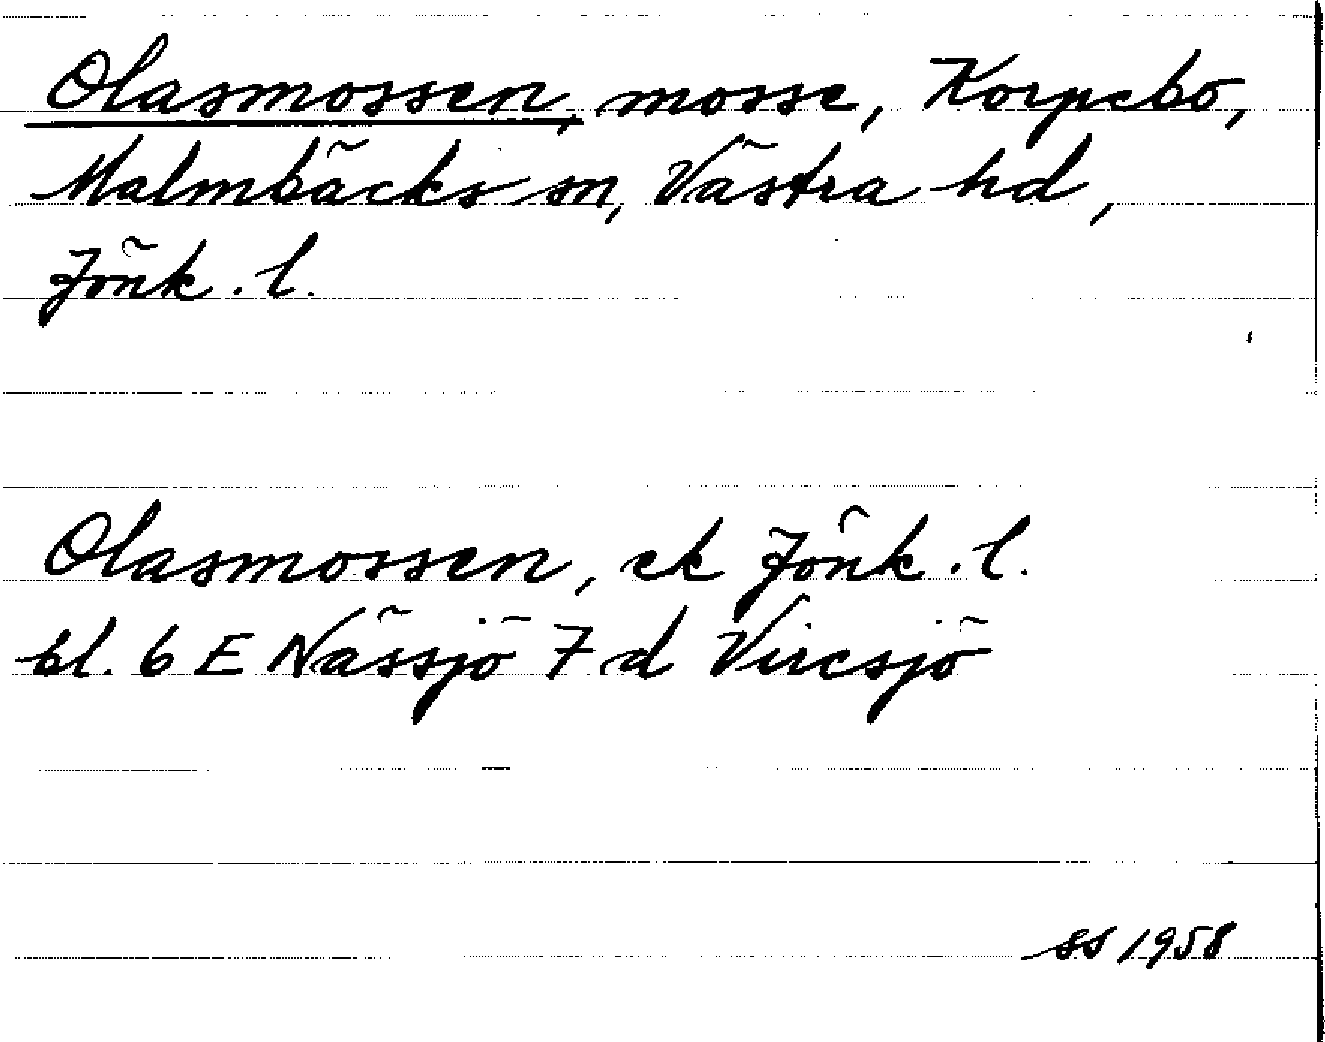 Olasmossen, mosse, Korpebo,
Malmbäcks sn, Västra hd,
Jönk. l.
Olasmossen, ek Jönk. l.
bl. 6 E Nässjö 7 d Viresjö
SS 1958